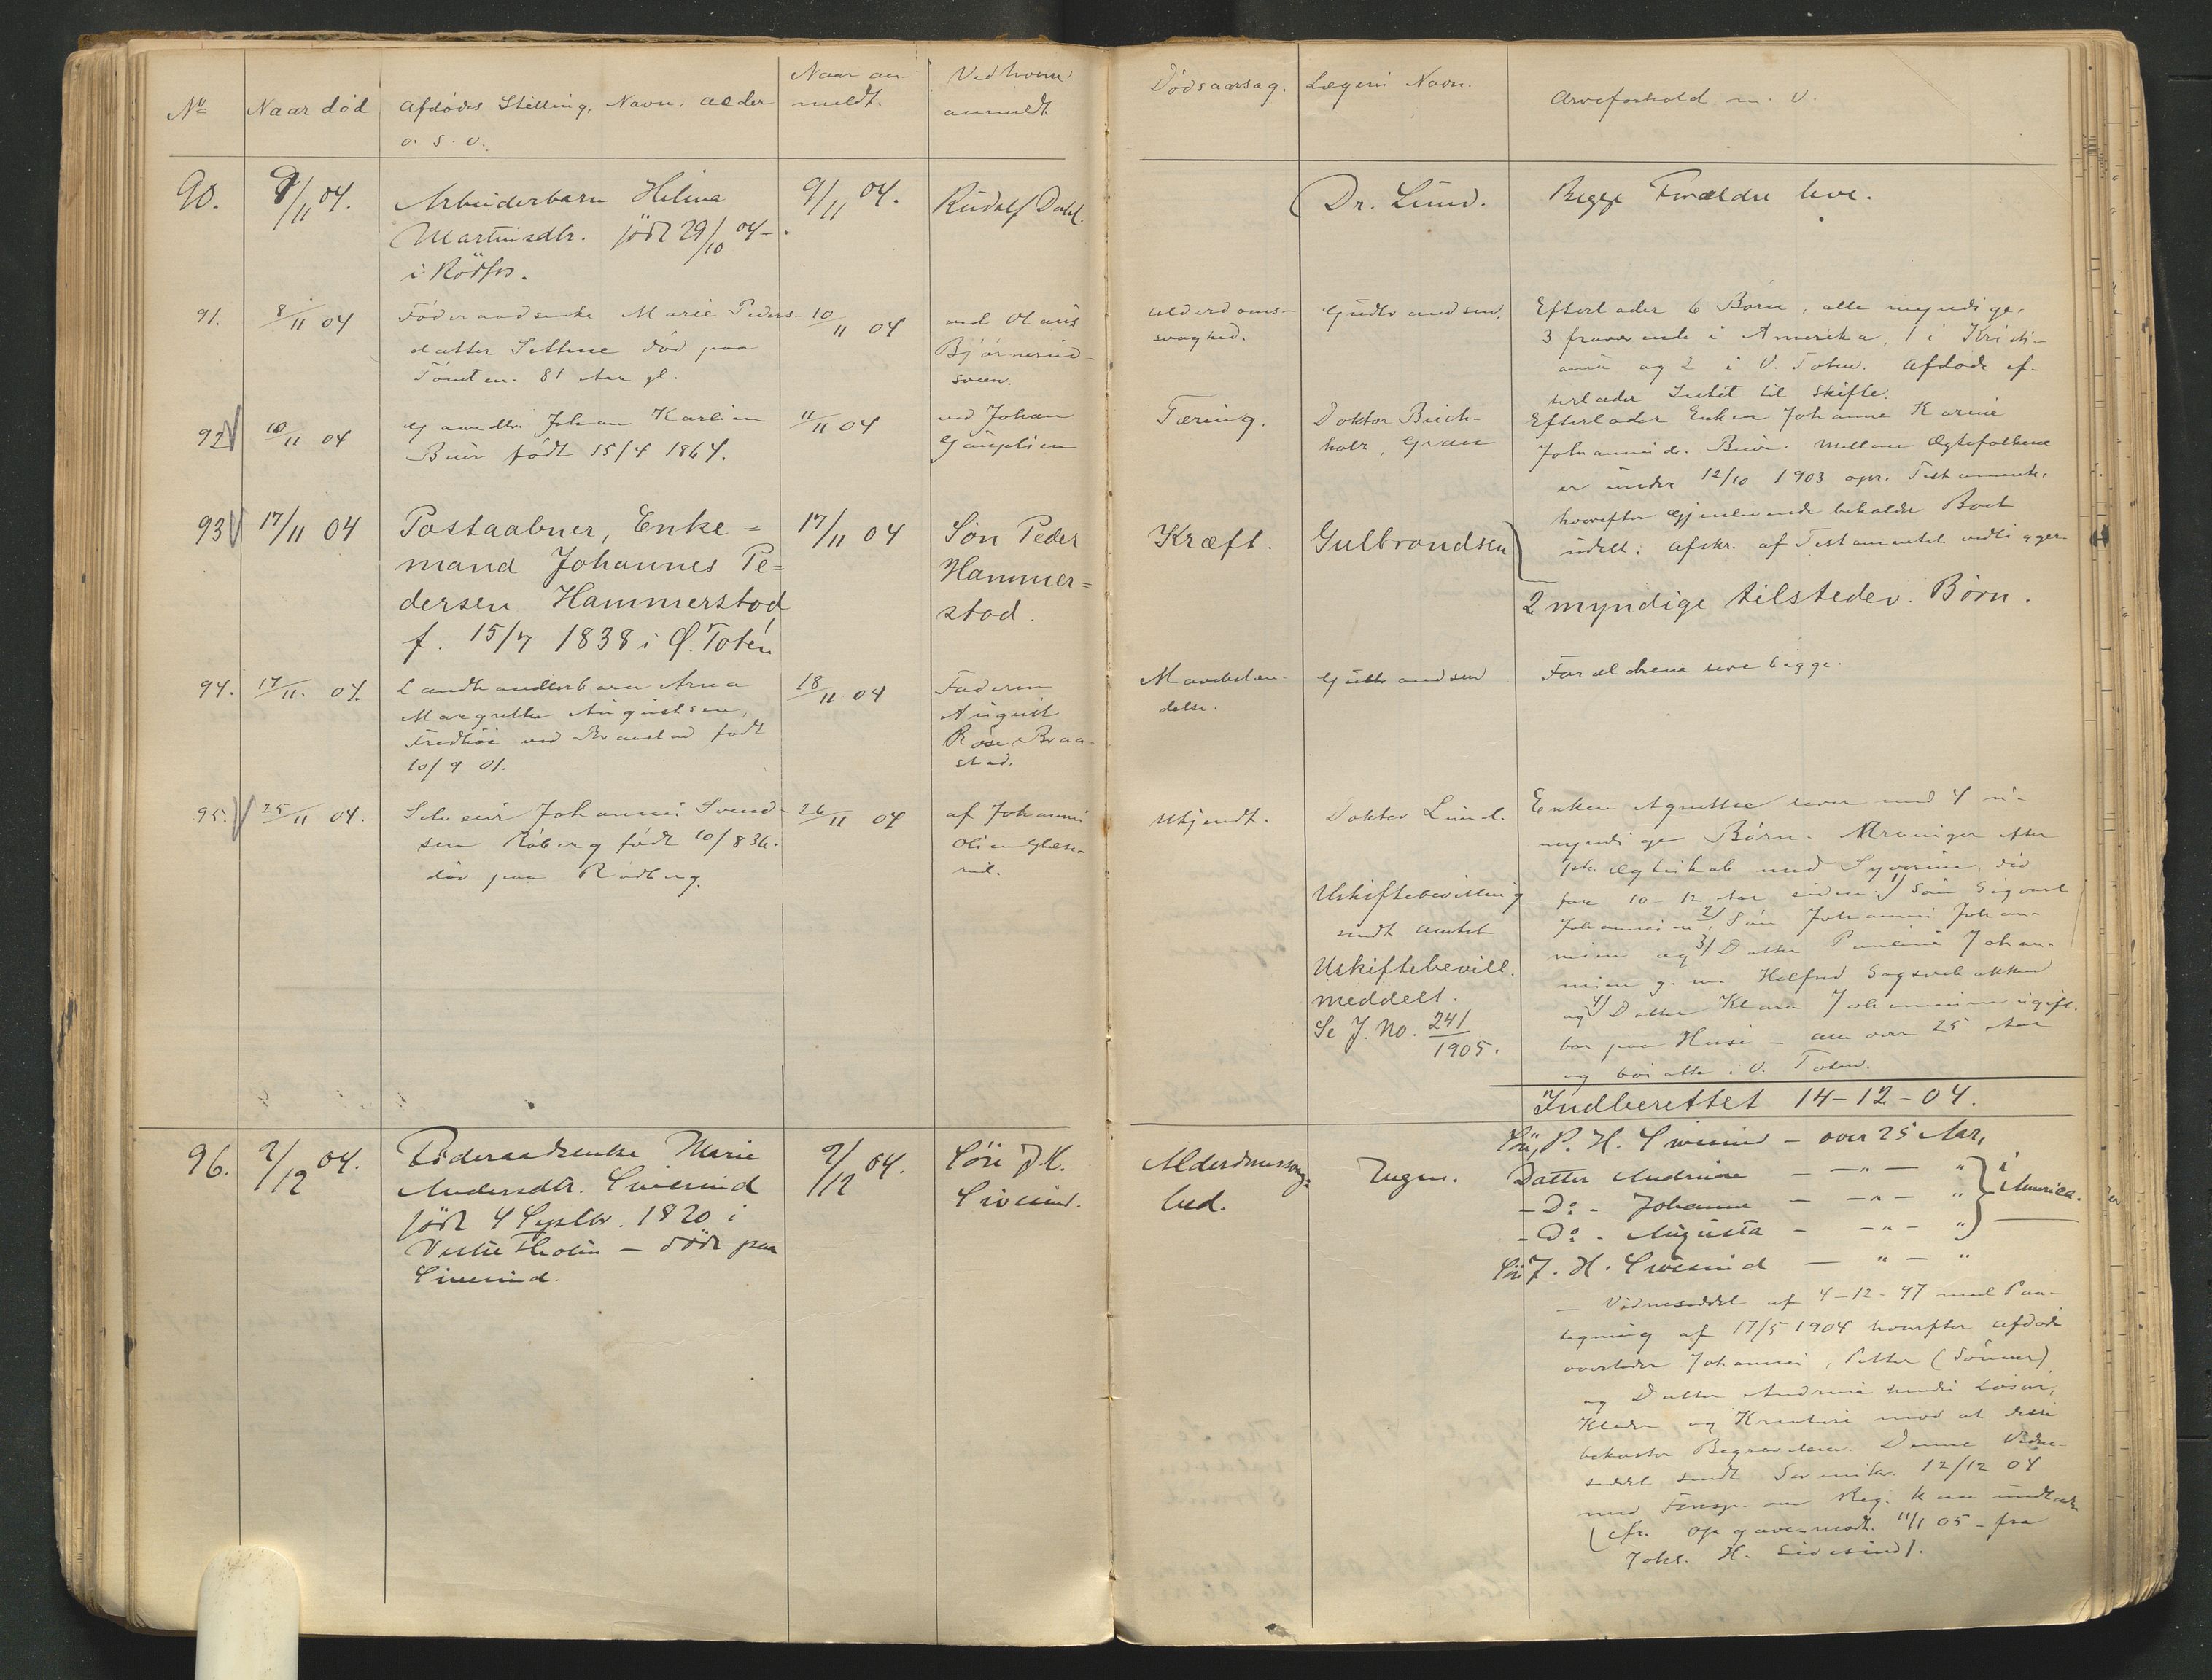 Naar an- Ved hvem
No Naar død Afdødes Stilling, Navn, Alder meldt. anmeldt
o. s. v.
Dødsaarsag. Lægens Navn. Arveforhold m. V.
90. 9/11 04. Arbeiderbarn Helina 9/11 04. Rudolf Dahl.
Martinsdtr. født 29/10 04 -
i Rödfos.
Dr. Lund. Begge Forældre leve.
91. 8/11 04 Føderaadsenke Marie Peders- 10/11 04 ved Olaus
datter Sethne død paa Bjørnerud-
81 Aar gl. sveen.
Alderdoms- Gulbrandsen. Efterlader 6 Børn, alle myndige.
svaghed. 3 fraværende i Amerika, 1 i Kristi-
ania og 2 i V. Toten. Afdøde ef-
terlader Intet til Skifte.
92 10/11 04 Gaardbr. Johan Karlsen 11/11 04 ved Johan
født 15/4 1864.
Tæring. Doktor Buch- Efterlader Enken Johanne Karine
holz, Gran Johannesdr. Mellem Ægtefolkene
er under 12/10 1903 opr. Testamente,
hvorefter gjenlevende beholder Boet
udelt. Afskr. af Testamentet vedligger
93 17/11 04 Postaabner, Enke= 17/11 04 Søn Peder
mand Johannes Pe= Hammer=
dersen Hammerstad stad.
f. 15/7 1838 i Ø. Toten
Kræft. Gulbrandsen
2 myndige tilstedev. Børn.
94. 17/11. 04. Landhandlerbarn Anna 18/11 04 Faderen
Margrethe Augustsen, August
Fredhøi ved Braastad født Rose, Braa-
10/9 01. stad.
Mavebetæn- Gulbrandsen Forældrene leve begge.
delse.
95. 25/11 04. Selveier Johannes Svend- 26/11 04 af Johannes
sen Røberg født 10/8 36. Olsen
død paa Rødberg.
Ukjendt. Doktor Lund. Enken Agnethe lever med 4 u-
myndige Børn. Arvinger efter
1ste Ægteskab med Syverine, død
for 10-12 Aar siden: 1) Søn Sigvart
Johannesen, 2) Søn Johannes Johan-
nesen og 3) Datter Pauline Johan-
nesen g. m. Helfred Sagsvebakken
og 4) Datter Klara Johannesen ugift.
bor paa Huse - alle over 25 Aar
og bor alle i V. Toten.
Uskiftebevilling
sendt Amtet
Uskiftebevill.
meddelt.
Se J. No. 241/1905.
Indberettet 14-12-04.
96. 2/12 04. Føderaadsenke Marie 2/12 04. Søn J. H.
Andersdtr. Sivesind Sivesind.
født 4 Septbr. 1820 i
Vestre Thoten - død paa
Sivesind.
Alderdomssvag= Ingen.
hed.
Søn P. H. Sivesind - over 25 Aar,
Datter Andrine - -"- " i
- Do - Johanne - -"- " America.
- Do - Augusta - -"- "
Søn J. H. Sivesind - " - "
- Vidnesseddel af 4-12-97 med Paa-
tegning af 17/5 1904 hvorefter Afdøde
overlader Johannes, Petter (Sønner)
og Datter Andrine hendes Løsøre,
Klæder og Kreature mod at disse
bekoster Begravelsen. Denne Vidne-
seddel sendt Sorenskr. 12/12 04
med Foresp. om Reg. kan undlades
(cfr. Opgave modt. 11/1 05 - fra
Johs. H. Sivesind).